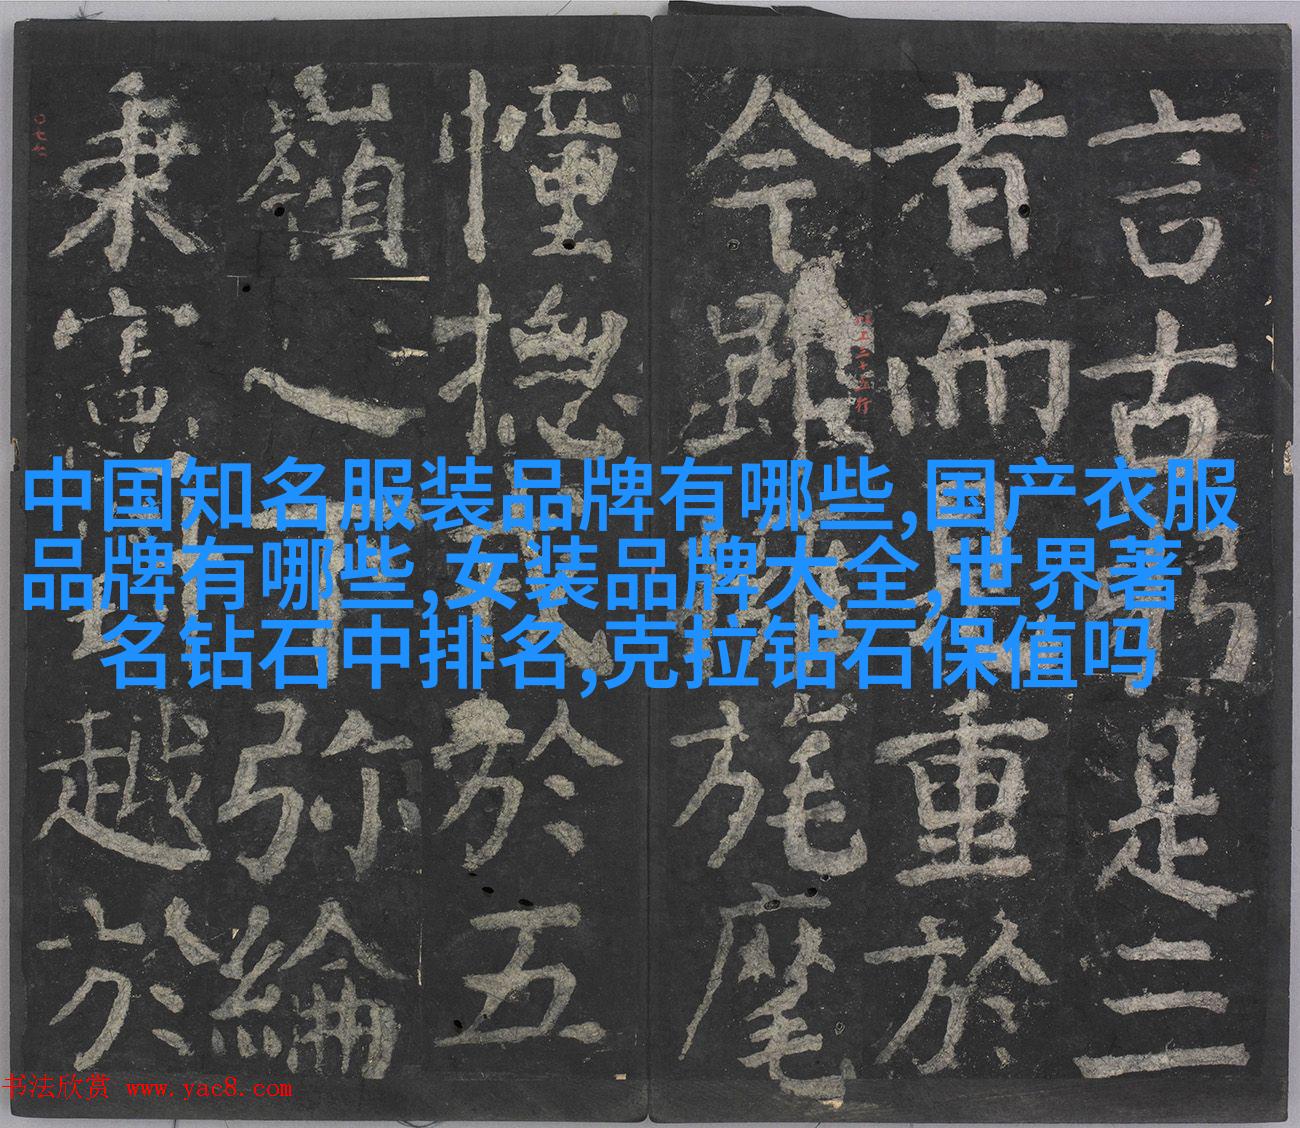 言古是三
者而重於
今雖旄麾
幢摠於五
嶺之弥綸
秉越於
中国知名服装品牌有哪些,国产衣服
品牌有哪些,女装品牌大全,世界著
名钻石中排名,克拉钻石保值吗
书法欣赏 www.yac8.com